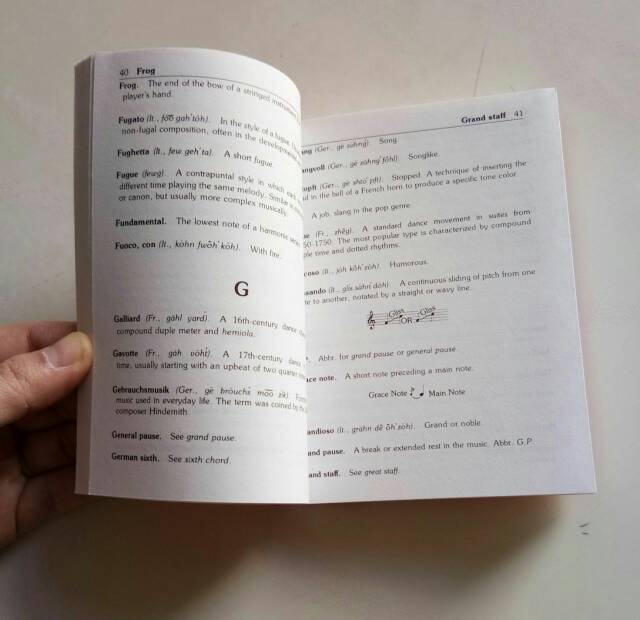 40 Frog
Frog. The end of the bow of a stringed instrument
player's hand.
Fugato (It., foo gah' tōh). In the style of a fugue.
non-fugal composition, often in the developmental
Fughetta (It., few geh' ta). A short fugue.
Fugue (fewg). A contrapuntal style in which each
different time playing the same melody. Similar
or canon, but usually more complex musically.
Fundamental. The lowest note of a harmonic series
Fuoco, con (It., kohn fwōh' kōh). With fire.
G
Galliard (Fr., gahl yard). A 16th-century dance
compound duple meter and hemiola.
Gavotte (Fr., gah vōht). A 17th-century dance
time, usually starting with an upbeat of two quarter
Gebrauchsmusik (Ger., gě brouchs moo zik)
music used in everyday life. The term was coined by
composer Hindemith.
General pause. See grand pause.
German sixth. See sixth chord.
Grand staff 41
ang (Ger., ge sahng). Song.
angvoll (Ger., ge zahng' fōhl). Songlike.
opft Stopped. A technique of inserting the
in the bell of a French horn to produce a specific tone color.
A job, slang in the pop genre.
(Fr., zhēg). A standard dance movement in suites from
50-1750. The most popular type is characterized by compound
ple time and dotted rhythms.
coso (It., joh kōh' zōh). Humorous.
sando (It., glis sahn' dōh). A continuous sliding of pitch from one
te to another, notated by a straight or wavy line.
Gliss OR Gliss
Abbr. for grand pause or general pause.
ace note. A short note preceding a main note.
Grace Note Main Note
andioso (It., grahn dē ōh' zōh). Grand or noble.
and pause. A break or extended rest in the music. Abbr. G.P.
and staff. See great staff.